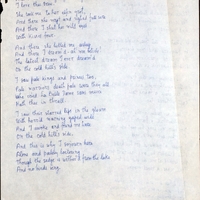 I love thee true.
She took me to her elfin grot,
And there she wept and sighed full sore
And there I shut her wild
With kisses four.
And there she lulled me asleep
And there I dream'd - ah woe betide!
The latest dream I ever dream'd
On the cold hill's side.
I saw pale kings and princes too,
Pale warriors, death pale were they all
Who cried "La Belle Dame sans merci
Hath thee in thrall!"
I saw their starved lips in the gloam
With horrid warning gaped wide
And I awoke and found me here
On the cold hill's side.
And this is why I sojourn here
Alone and palely loitering
Though the sedge is wither'd from the lake
And no birds sing.